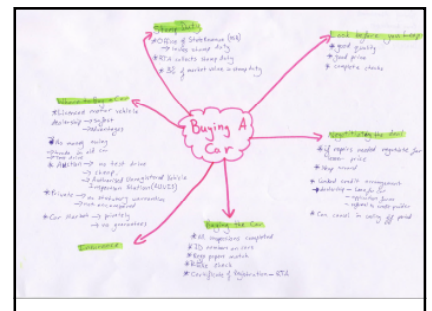 Stamp Duty
* Office of State Revenue (OSR)
→ sets stamp duty
* RTA collects stamp duty
* 3% of market value in stamp duty
Look before you leap
* good quality
* good price
* complete checks
Where to Buy a Car
* Licenced motor vehicle
dealership → safest
→ advantages
* As money
→ trade in old car
→ test drive
* Auction → no test drive
→ cheap
→ Authorised Unregistered Vehicle
Inspection Station (AUVIS)
* Private → no statutory warranties
→ not encumbered
* Car Market → privately
→ no guarantees
Buying A
Car
Negotiating the deal
* if repairs needed negotiate for
lower price
* Shop around
* Linked credit arrangement
→ dealership
application forms
→ approval to credit provider
* Can cancel in cooling off period
Buying the Car
* All inspections completed
* ID numbers on cars
* Rego papers match
* check
* Certificate of Registration - RTA
Insurance